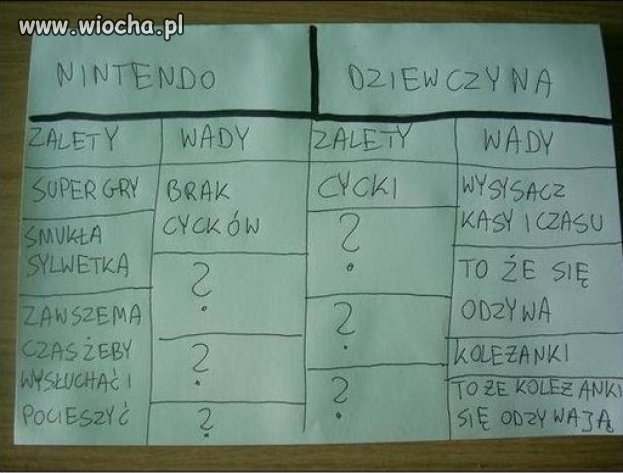 www.wiocha.pl
NINTENDO
DZIEWCZYNA
ZALETY
WADY
ZALETY
WADY
SUPER GRY
SMUKŁA
SYLWETKA
ZAWSZE MA
CZAS ŻEBY
WYSŁUCHAĆ I
POCIESZYĆ
BRAK
CYCKÓW
?
?
?
CYCKI
?
?
?
WYSYSACZ
KASY I CZASU
TO ŻE SIĘ
ODZYWA
KOLEŻANKI
TO ŻE KOLEŻANKI
SIĘ ODZYWAJĄ